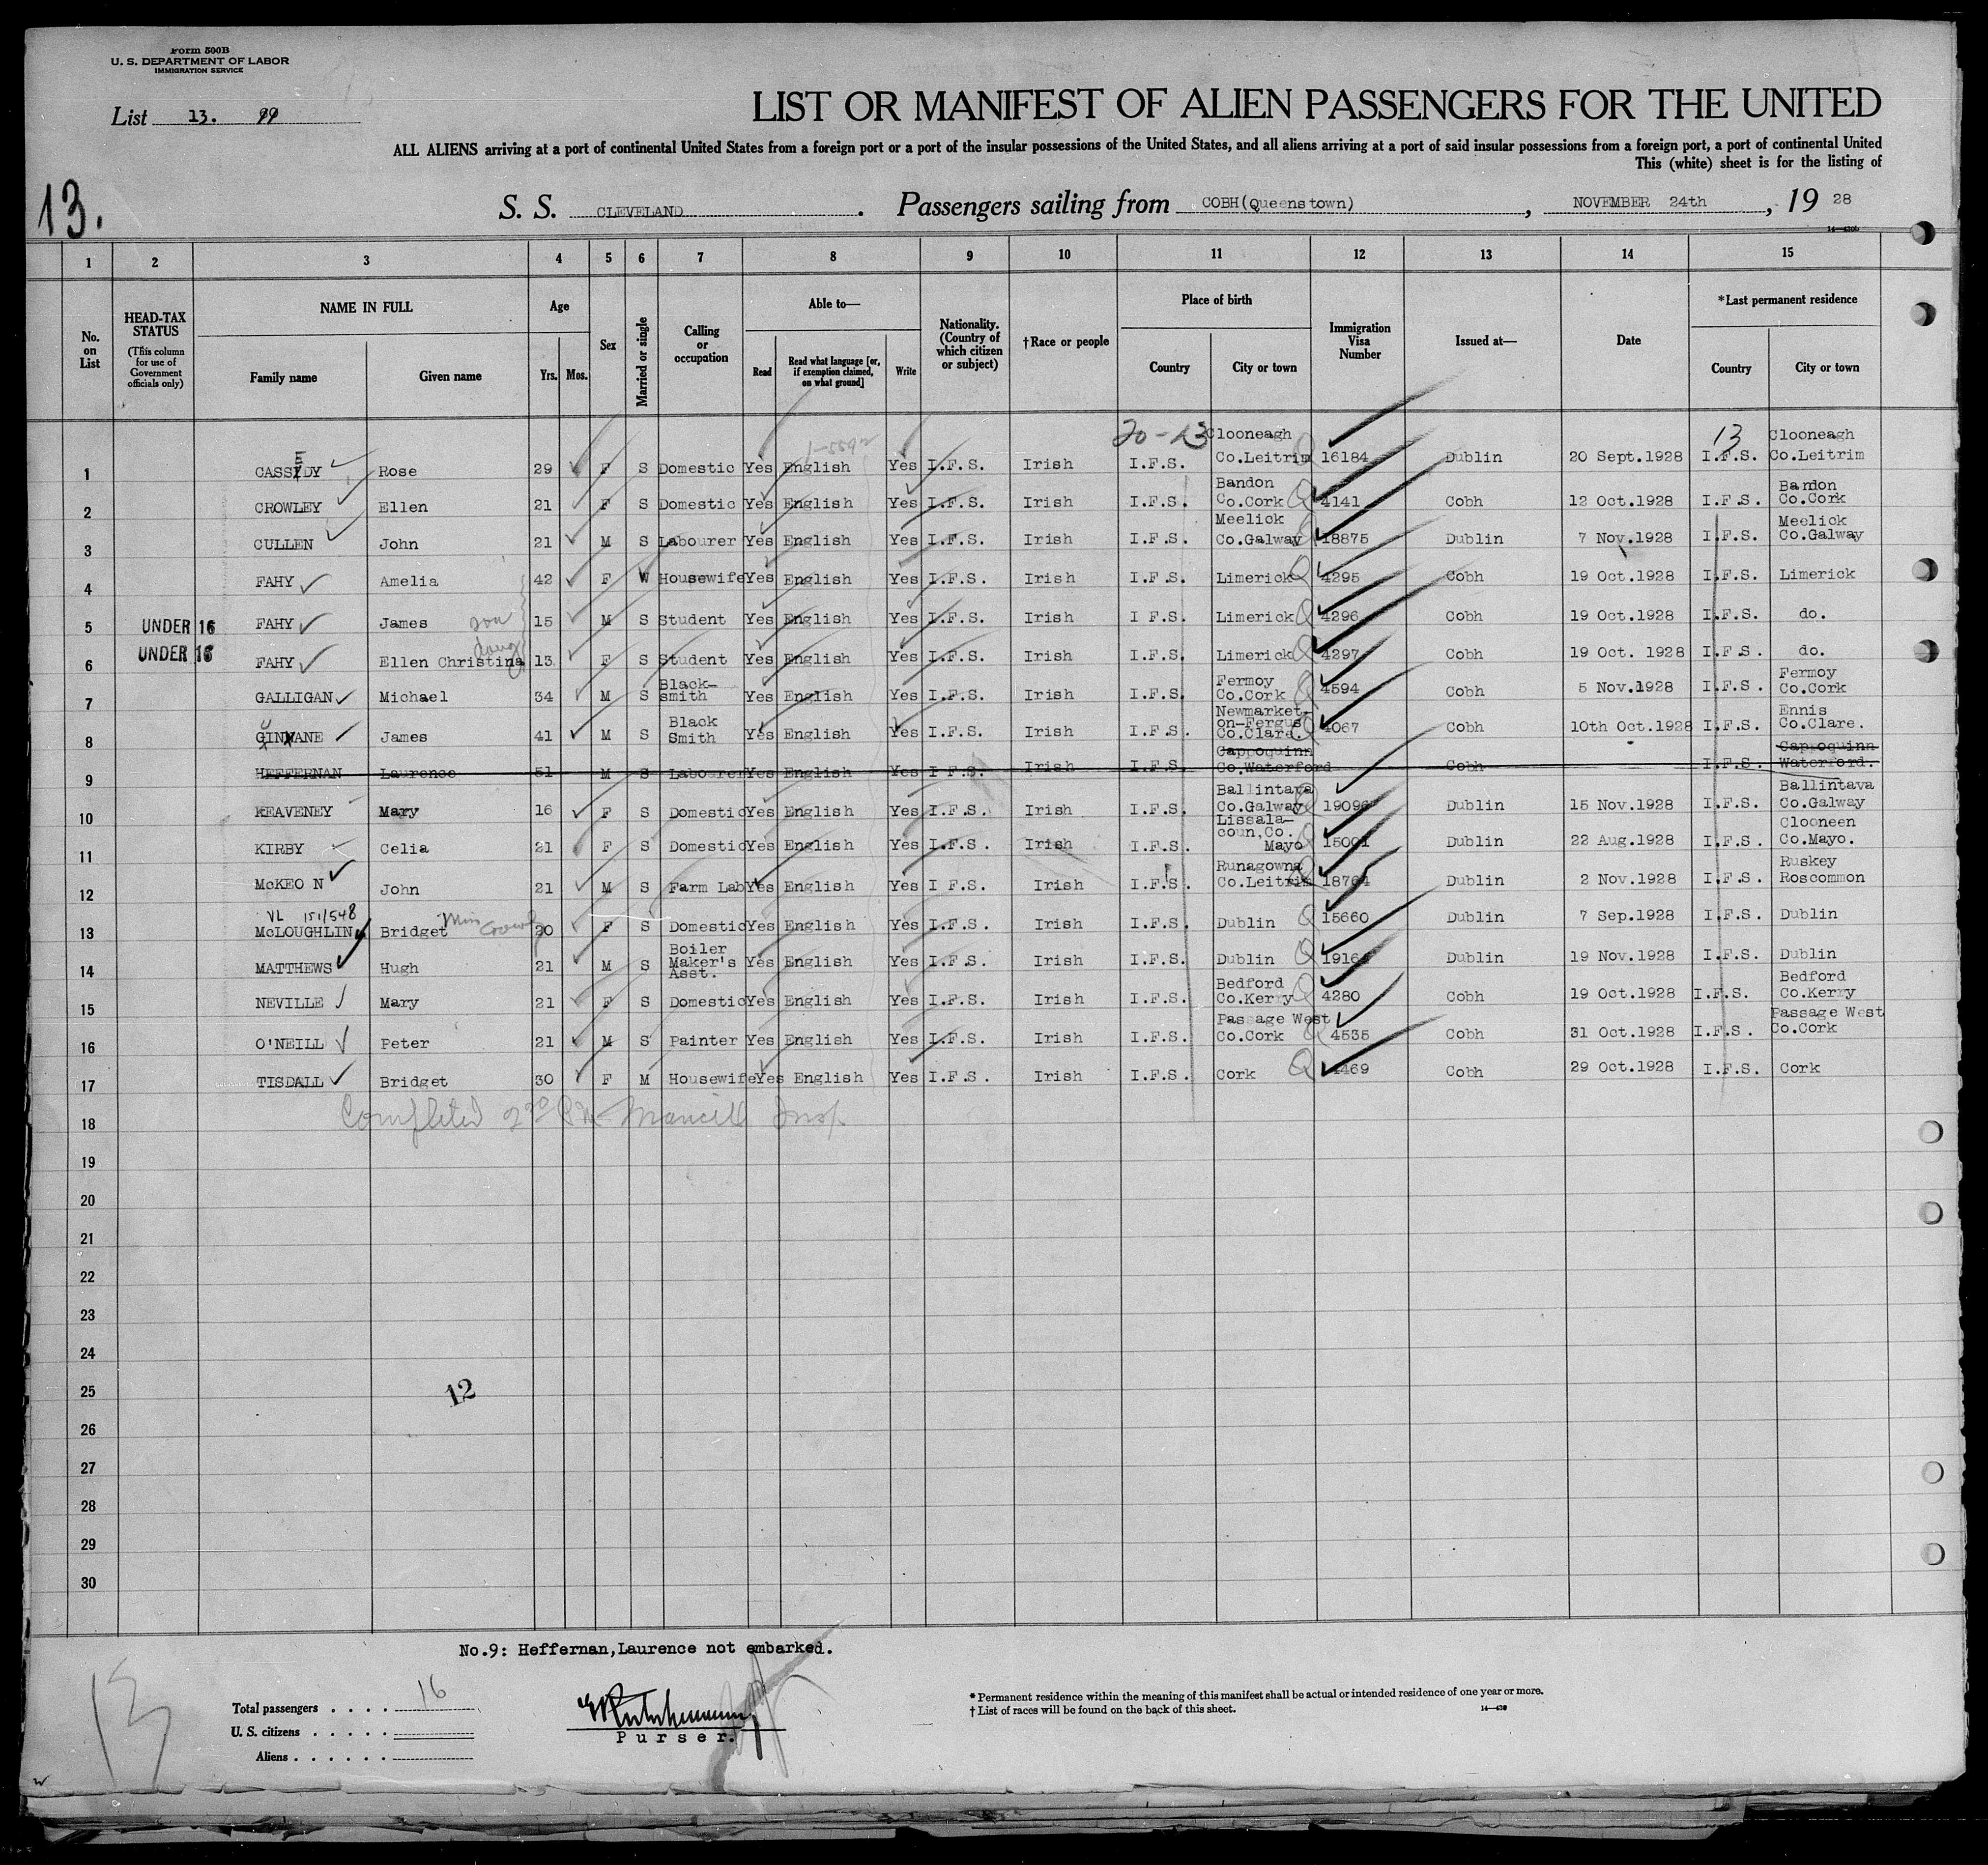 Form 500B
U. S. DEPARTMENT OF LABOR
IMMIGRATION SERVICE
List 13. 99
LIST OR MANIFEST OF ALIEN PASSENGERS FOR THE UNITED
ALL ALIENS arriving at a port of continental United States from a foreign port or a port of the insular possessions of the United States, and all aliens arriving at a port of said insular possessions from a foreign port, a port of continental United
This (white) sheet is for the listing of
13.
S. S. CLEVELAND. Passengers sailing from COBH(Queenstown), NOVEMBER 24th, 19 28
1 2 3 4 5 6 7 8 9 10 11 12 13 14 15
No. on List
HEAD-TAX STATUS (This column for use of Government officials only)
NAME IN FULL Family name Given name
Age Yrs. Mos.
Sex
Married or single
Calling or occupation
Able to— Read Read what language [or, if exemption claimed, on what ground] Write
Nationality. (Country of which citizen or subject)
†Race or people
Place of birth Country City or town
Immigration Visa Number
Issued at—
Date
*Last permanent residence Country City or town
20-13 13
1 CASSEDY Rose 29 F S Domestic Yes English Yes I.F.S. Irish I.F.S. Clooneagh Co.Leitrim 16184 Dublin 20 Sept.1928 I.F.S. Clooneagh Co.Leitrim
2 CROWLEY Ellen 21 F S Domestic Yes English Yes I.F.S. Irish I.F.S. Bandon Co.Cork 4141 Cobh 12 Oct.1928 I.F.S. Bandon Co.Cork
3 CULLEN John 21 M S Labourer Yes English Yes I.F.S. Irish I.F.S. Meelick Co.Galway 18875 Dublin 7 Nov.1928 I.F.S. Meelick Co.Galway
4 FAHY Amelia 42 F W Housewife Yes English Yes I.F.S. Irish I.F.S. Limerick 4295 Cobh 19 Oct.1928 I.F.S. Limerick
5 UNDER 16 FAHY James son 15 M S Student Yes English Yes I.F.S. Irish I F.S. Limerick 4296 Cobh 19 Oct.1928 I.F.S. do.
6 UNDER 16 FAHY Ellen Christina daug 13 F S Student Yes English Yes I.F.S. Irish I.F.S. Limerick 4297 Cobh 19 Oct. 1928 I.F.S. do.
7 GALLIGAN Michael 34 M S Black-smith Yes English Yes I.F.S. Irish I.F.S. Fermoy Co.Cork 4594 Cobh 5 Nov.1928 I.F.S. Fermoy Co.Cork
8 GINNANE James 41 M S Black Smith Yes English Yes I.F.S. Irish I.F.S. Newmarket-on-Fergus Co.Clare. 4067 Cobh 10th Oct.1928 I.F.S. Ennis Co.Clare.
9 HEFFERNAN Laurence 51 M S Labourer Yes English Yes I F.S. Irish I.F.S. Cappoquinn Co.Waterford Cobh I.F.S. Cappoquinn Waterford.
10 KEAVENEY Mary 16 F S Domestic Yes English Yes I.F.S. Irish I.F.S. Ballintava Co.Galway 19096 Dublin 15 Nov.1928 I.F.S. Ballintava Co.Galway
11 KIRBY Celia 21 F S Domestic Yes English Yes I.F.S. Irish I.F.S. Lissala-coun,Co. Mayo 15001 Dublin 22 Aug.1928 I.F.S. Clooneen Co.Mayo.
12 McKEO N John 21 M S Farm Lab Yes English Yes I F.S. Irish I.F.S. Runagowna Co.Leitrim 18764 Dublin 2 Nov.1928 I.F.S. Ruskey Roscommon
VL 151/548
13 McLOUGHLIN Bridget 20 F S Domestic Yes English Yes I.F.S. Irish I.F.S. Dublin 15660 Dublin 7 Sep.1928 I.F.S. Dublin
14 MATTHEWS Hugh 21 M S Boiler Maker's Asst. Yes English Yes I.F.S. Irish I.F.S. Dublin 19164 Dublin 19 Nov.1928 I.F.S. Dublin
15 NEVILLE Mary 21 F S Domestic Yes English Yes I.F.S. Irish I.F.S. Bedford Co.Kerry 4280 Cobh 19 Oct.1928 I.F.S. Bedford Co.Kerry
16 O'NEILL Peter 21 M S Painter Yes English Yes I.F.S. Irish I.F.S. Passage West Co.Cork 4535 Cobh 31 Oct.1928 I.F.S. Passage West Co.Cork
17 TISDALL Bridget 30 F M Housewife Yes English Yes I.F.S. Irish I.F.S. Cork 4469 Cobh 29 Oct.1928 I.F.S. Cork
Completed 2 30 PM Insp
18
19
20
21
22
23
24
25
12
26
27
28
29
30
No.9: Heffernan,Laurence not embarked.
13
Total passengers . . . . 16
U. S. citizens . . . . .
Aliens . . . . . .
Purser.
* Permanent residence within the meaning of this manifest shall be actual or intended residence of one year or more.
† List of races will be found on the back of this sheet.